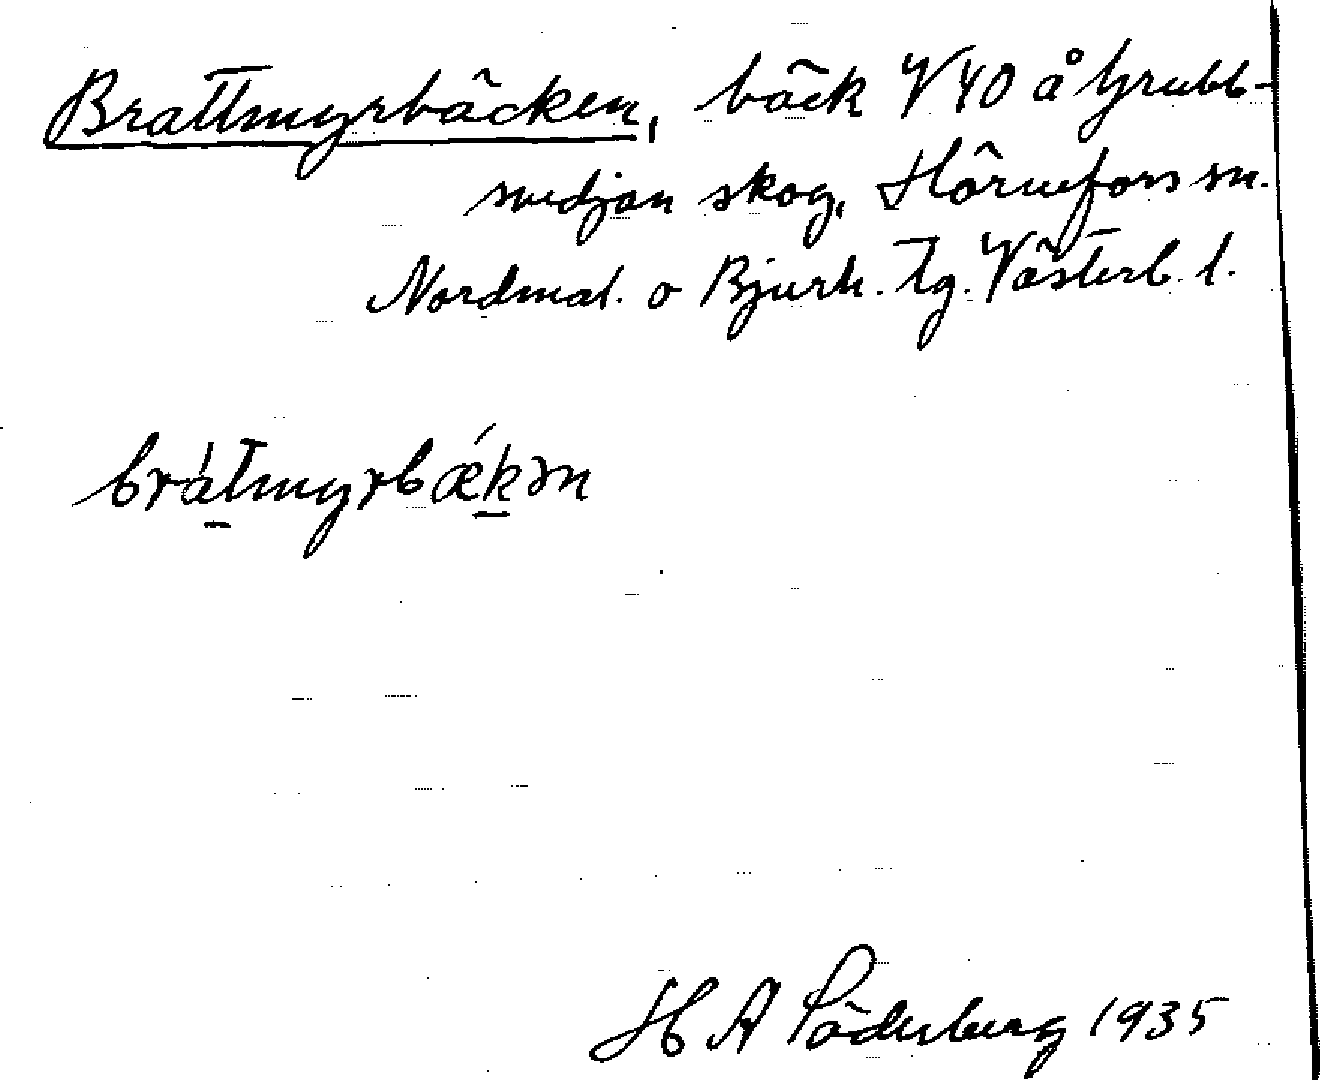 Brattmyrbäcken, bäck V40 å Grubb-
svedjan skog, Hörnefors sn.
Nordmal. o Bjurh. Tg. Västerb. l.
brátmyrbǽkən
H A Söderberg 1935